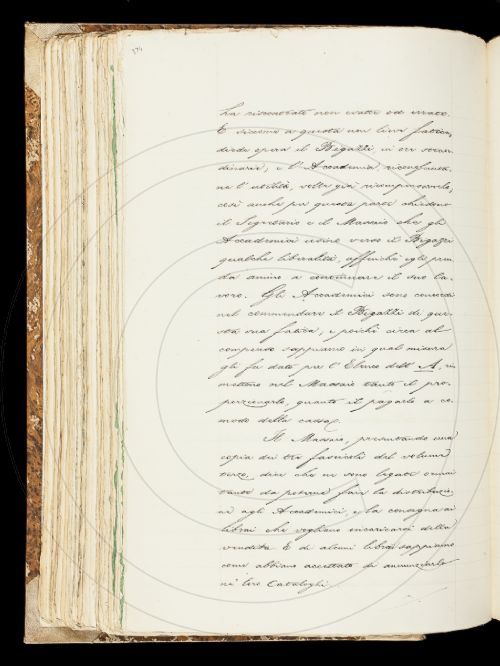 174
ha riscontrate non esatte od errate.
E siccome a questa non lieve fatica,
diede opera il Bigazzi in ore straor-
dinarie, e l'Accademia, riconosciuta-
ne l'utilità, volle già ricompensarlo,
così anche per questa parte chiedono
il Segretario e il Massaio che gli
Accademici usino verso il Bigazzi
qualche liberalità, affinché egli pren-
da animo a continuare il suo la-
voro. Gli Accademici sono concordi
nel commendare il Bigazzi di que-
sta sua fatica, e poiché circa al
compenso sappiamo in qual misura
gli fu dato per l'Elenco dell'A, ri-
mettono nel Massaio tanto il pro-
porzionarlo, quanto il pagarlo a co-
modo della cassa.
Il Massaio, presentando una
copia dei tre fascicoli del volume
terzo, dice che ne sono legate ormai
tante da poterne fare la distribuzio-
ne agli Accademici, e la consegna ai
librai che vogliano incaricarsi della
vendita. E di alcuni librai sappiamo
come abbiano accettato di annunziarlo
ne' loro Cataloghi.